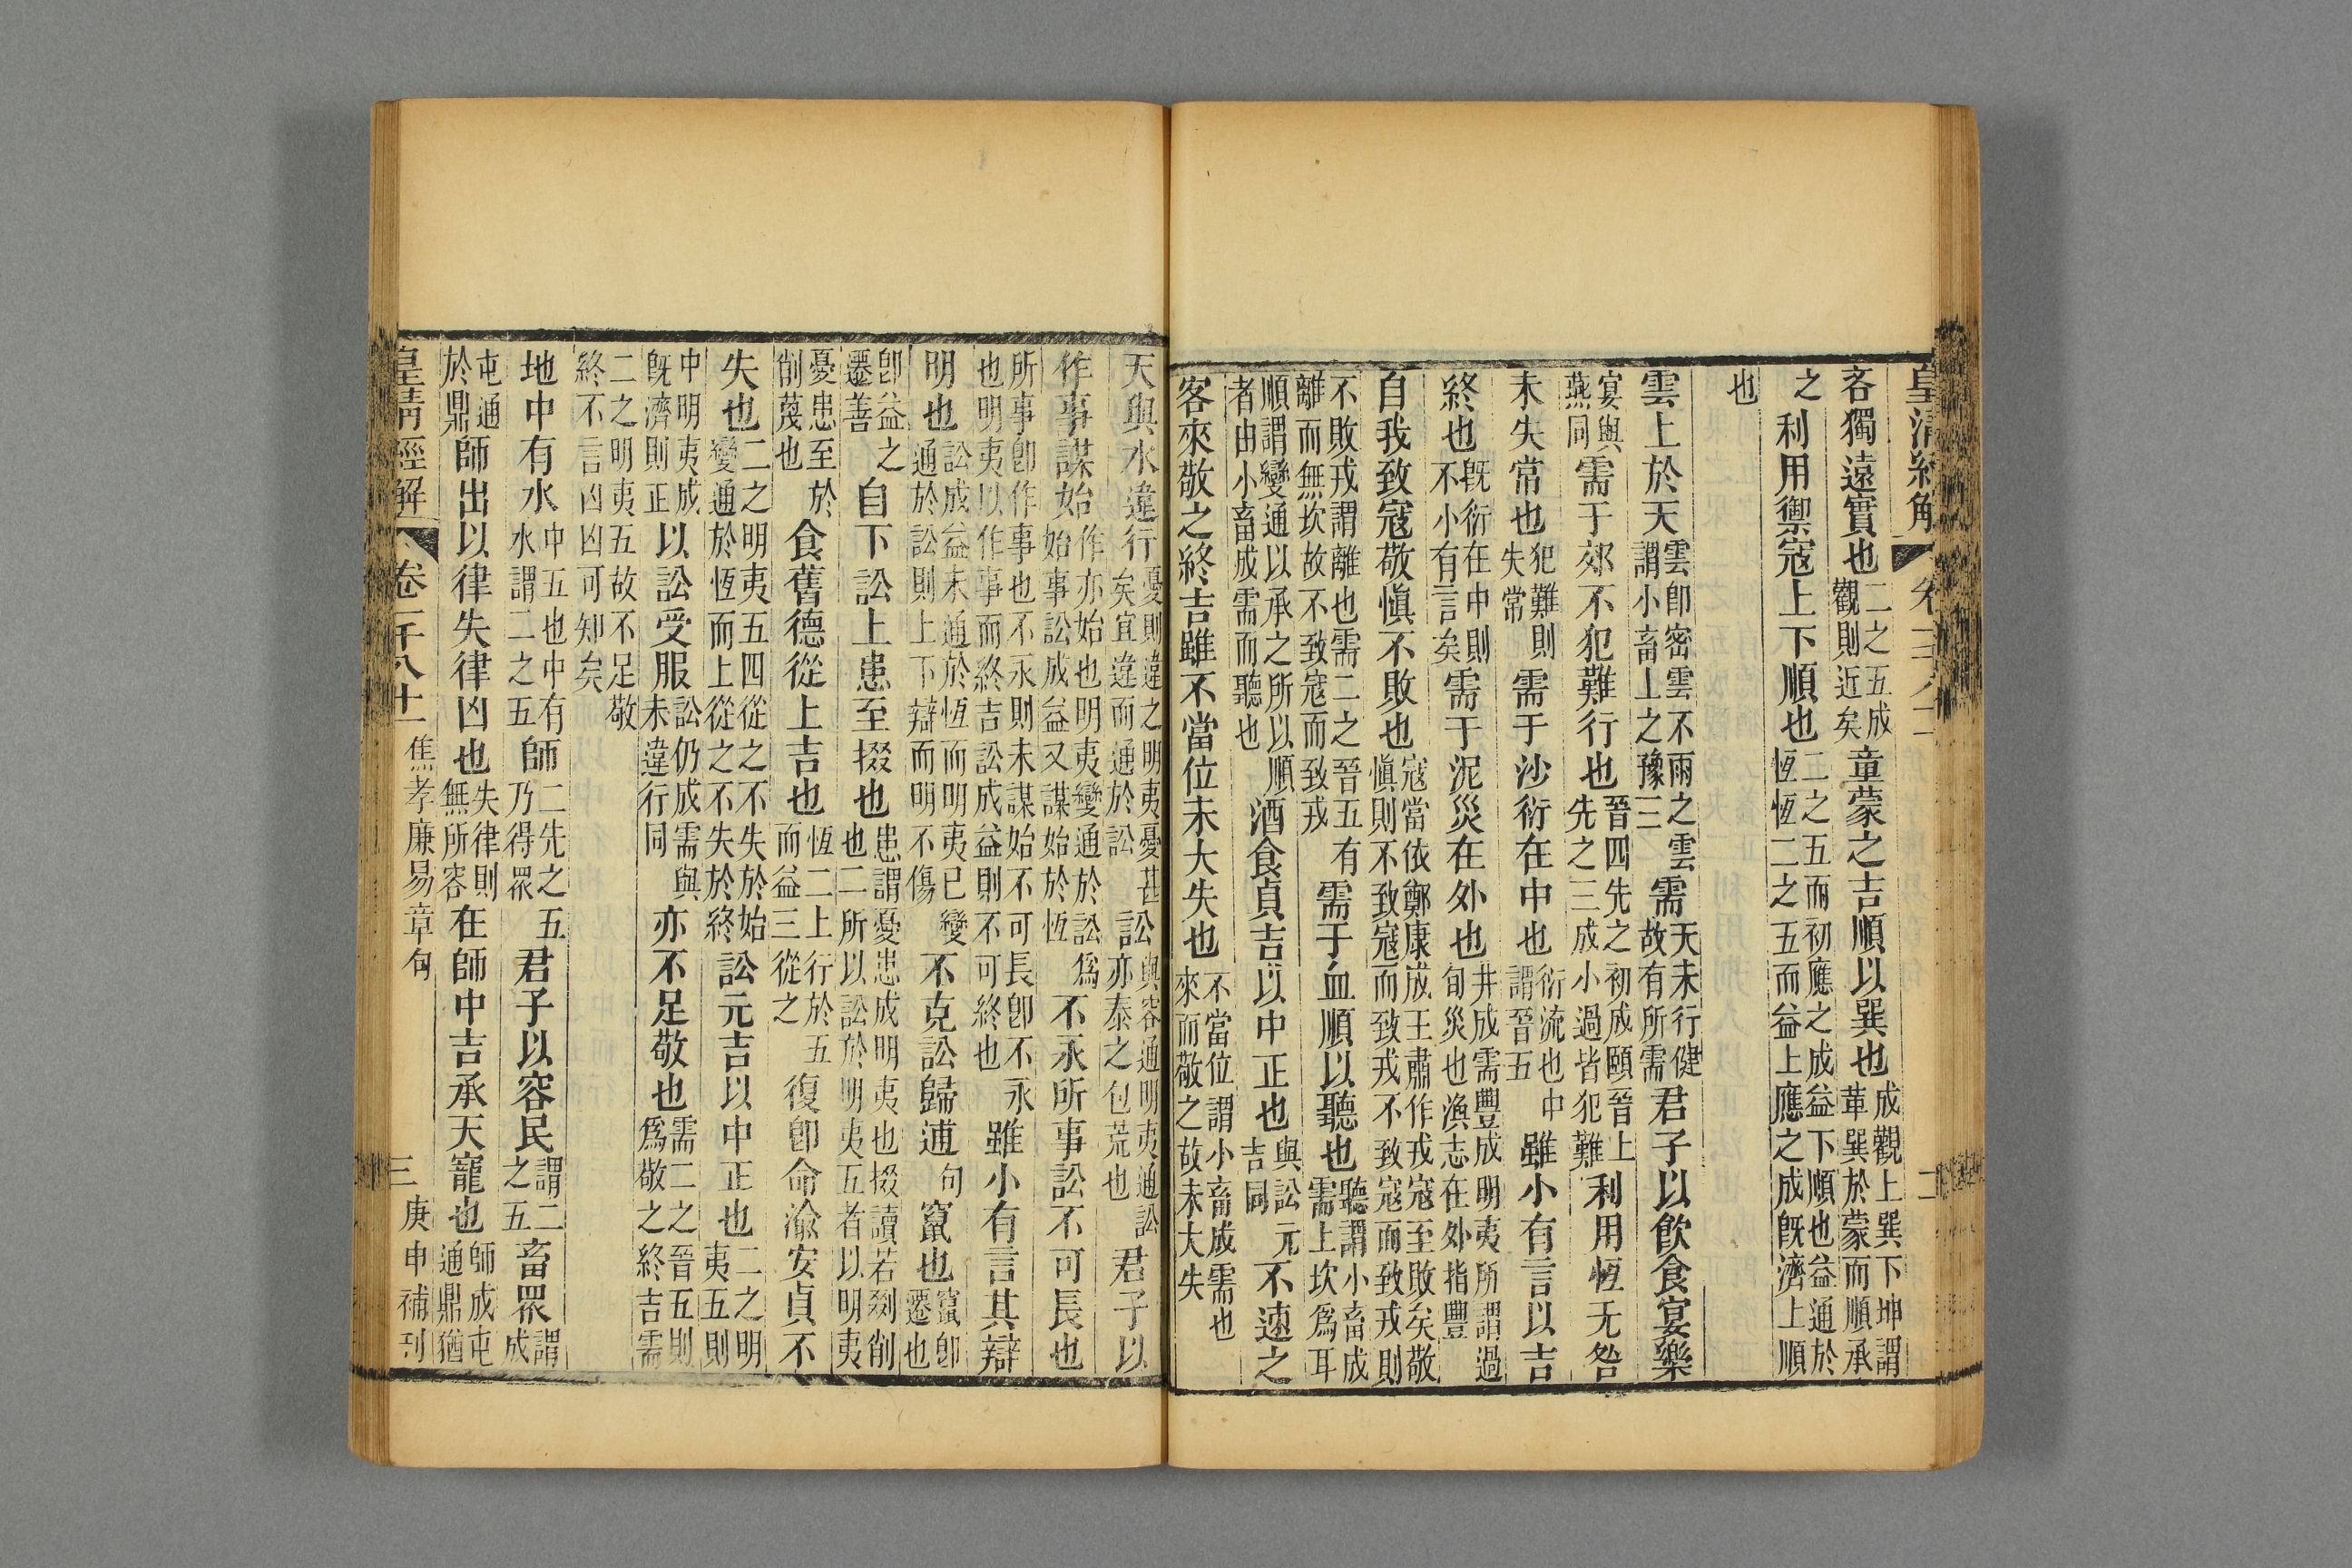 皇清經解
卷
二
吝獨遠實也二之五成觀則近矣童蒙之吉順以巽也成觀上巽下坤謂革巽於蒙而順承
之利用禦寇上下順也二之五而初應之成益下順也益通於恆恆二之五而益上應之成旣濟上順
也
雲上於天雲卽密雲不雨之雲謂小畜上之豫三需天未行健故有所需君子以飮食宴樂
宴與燕同需于郊不犯難行也晉四先之初成頤晉上先之三成小過皆犯難利用恆无咎
未失常也犯難則失常需于沙衍在中也衍流也中謂晉五雖小有言以吉
終也旣衍在中則不小有言矣需于泥災在外也井成需豐成明夷所謂過旬災也渙志在外指豐
自我致寇敬愼不敗也寇當依鄭康成王肅作戎寇至敗矣敬愼則不致寇而致戎不致寇而致戎則
不敗戎謂離也需二之晉五有離而無坎故不致寇而致戎需于血順以聽也聽謂小畜成需上坎爲耳
順謂變通以承之所以順者由小畜成需而聽也酒食貞吉以中正也與訟元吉同不速之
客來敬之終吉雖不當位未大失也不當位謂小畜成需也來而敬之故未大失
天與水違行憂則違之明夷憂甚矣宜違而通於訟訟與容通明夷通訟亦泰之包荒也君子以
作事謀始作亦始也明夷變通於訟爲始事訟成益又謀始於恆不永所事訟不可長也
所事卽作事也不永則未謀始不可長卽不永也明夷以作事而終吉訟成益則不可終也雖小有言其辯
明也訟成益未通於恆而明夷已變通於訟則上下辯而明不傷不克訟歸逋句竄也竄卽遷也
卽益之遷善自下訟上患至掇也患謂憂患成明夷也掇讀若剟削也二所以訟於明夷五者以明夷
憂患至於削蔑也食舊德從上吉也恆二上行於五而益三從之復卽命渝安貞不
失也二之明夷五四從之不失於始變通於恆而上從之不失於終訟元吉以中正也二之明夷五則
中明夷成旣濟則正以訟受服訟仍成需與未違行同亦不足敬也需二之晉五則爲敬之終吉需
二之明夷五故不足敬終不言凶凶可知矣
地中有水中五也中有水謂二之五師二先之五乃得眾君子以容民謂二之五畜眾謂成
屯通於鼎師出以律失律凶也失律則無所容在師中吉承天寵也師成屯通鼎猶
皇淸經解
卷一千八十一
焦孝廉易章句
三
庚申補刋